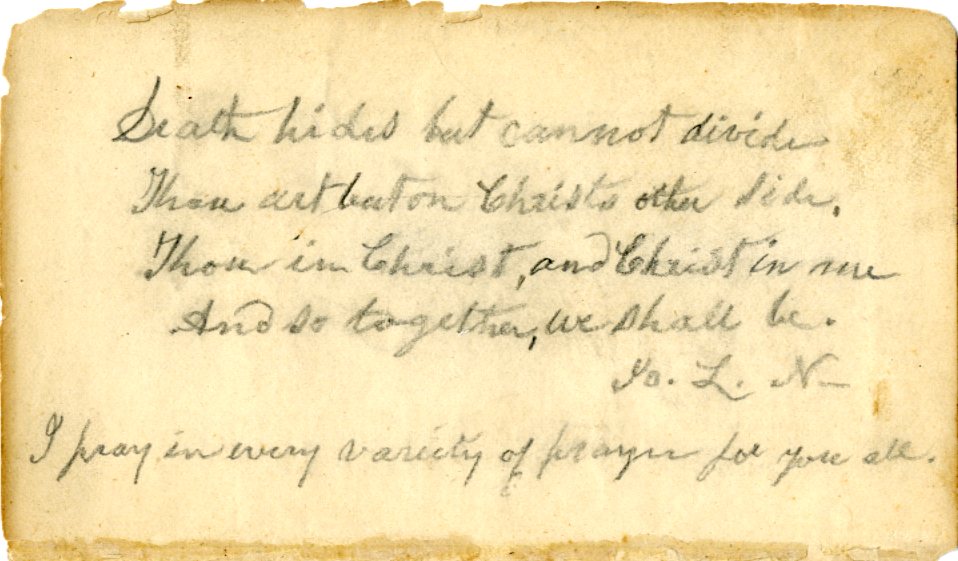 Death hides but cannot divide
Thou art but on Christs other side.
Thou in Christ, and Christ in me
And so together, we shall be.
L. N–
I pray in every variety of prayer for you all.